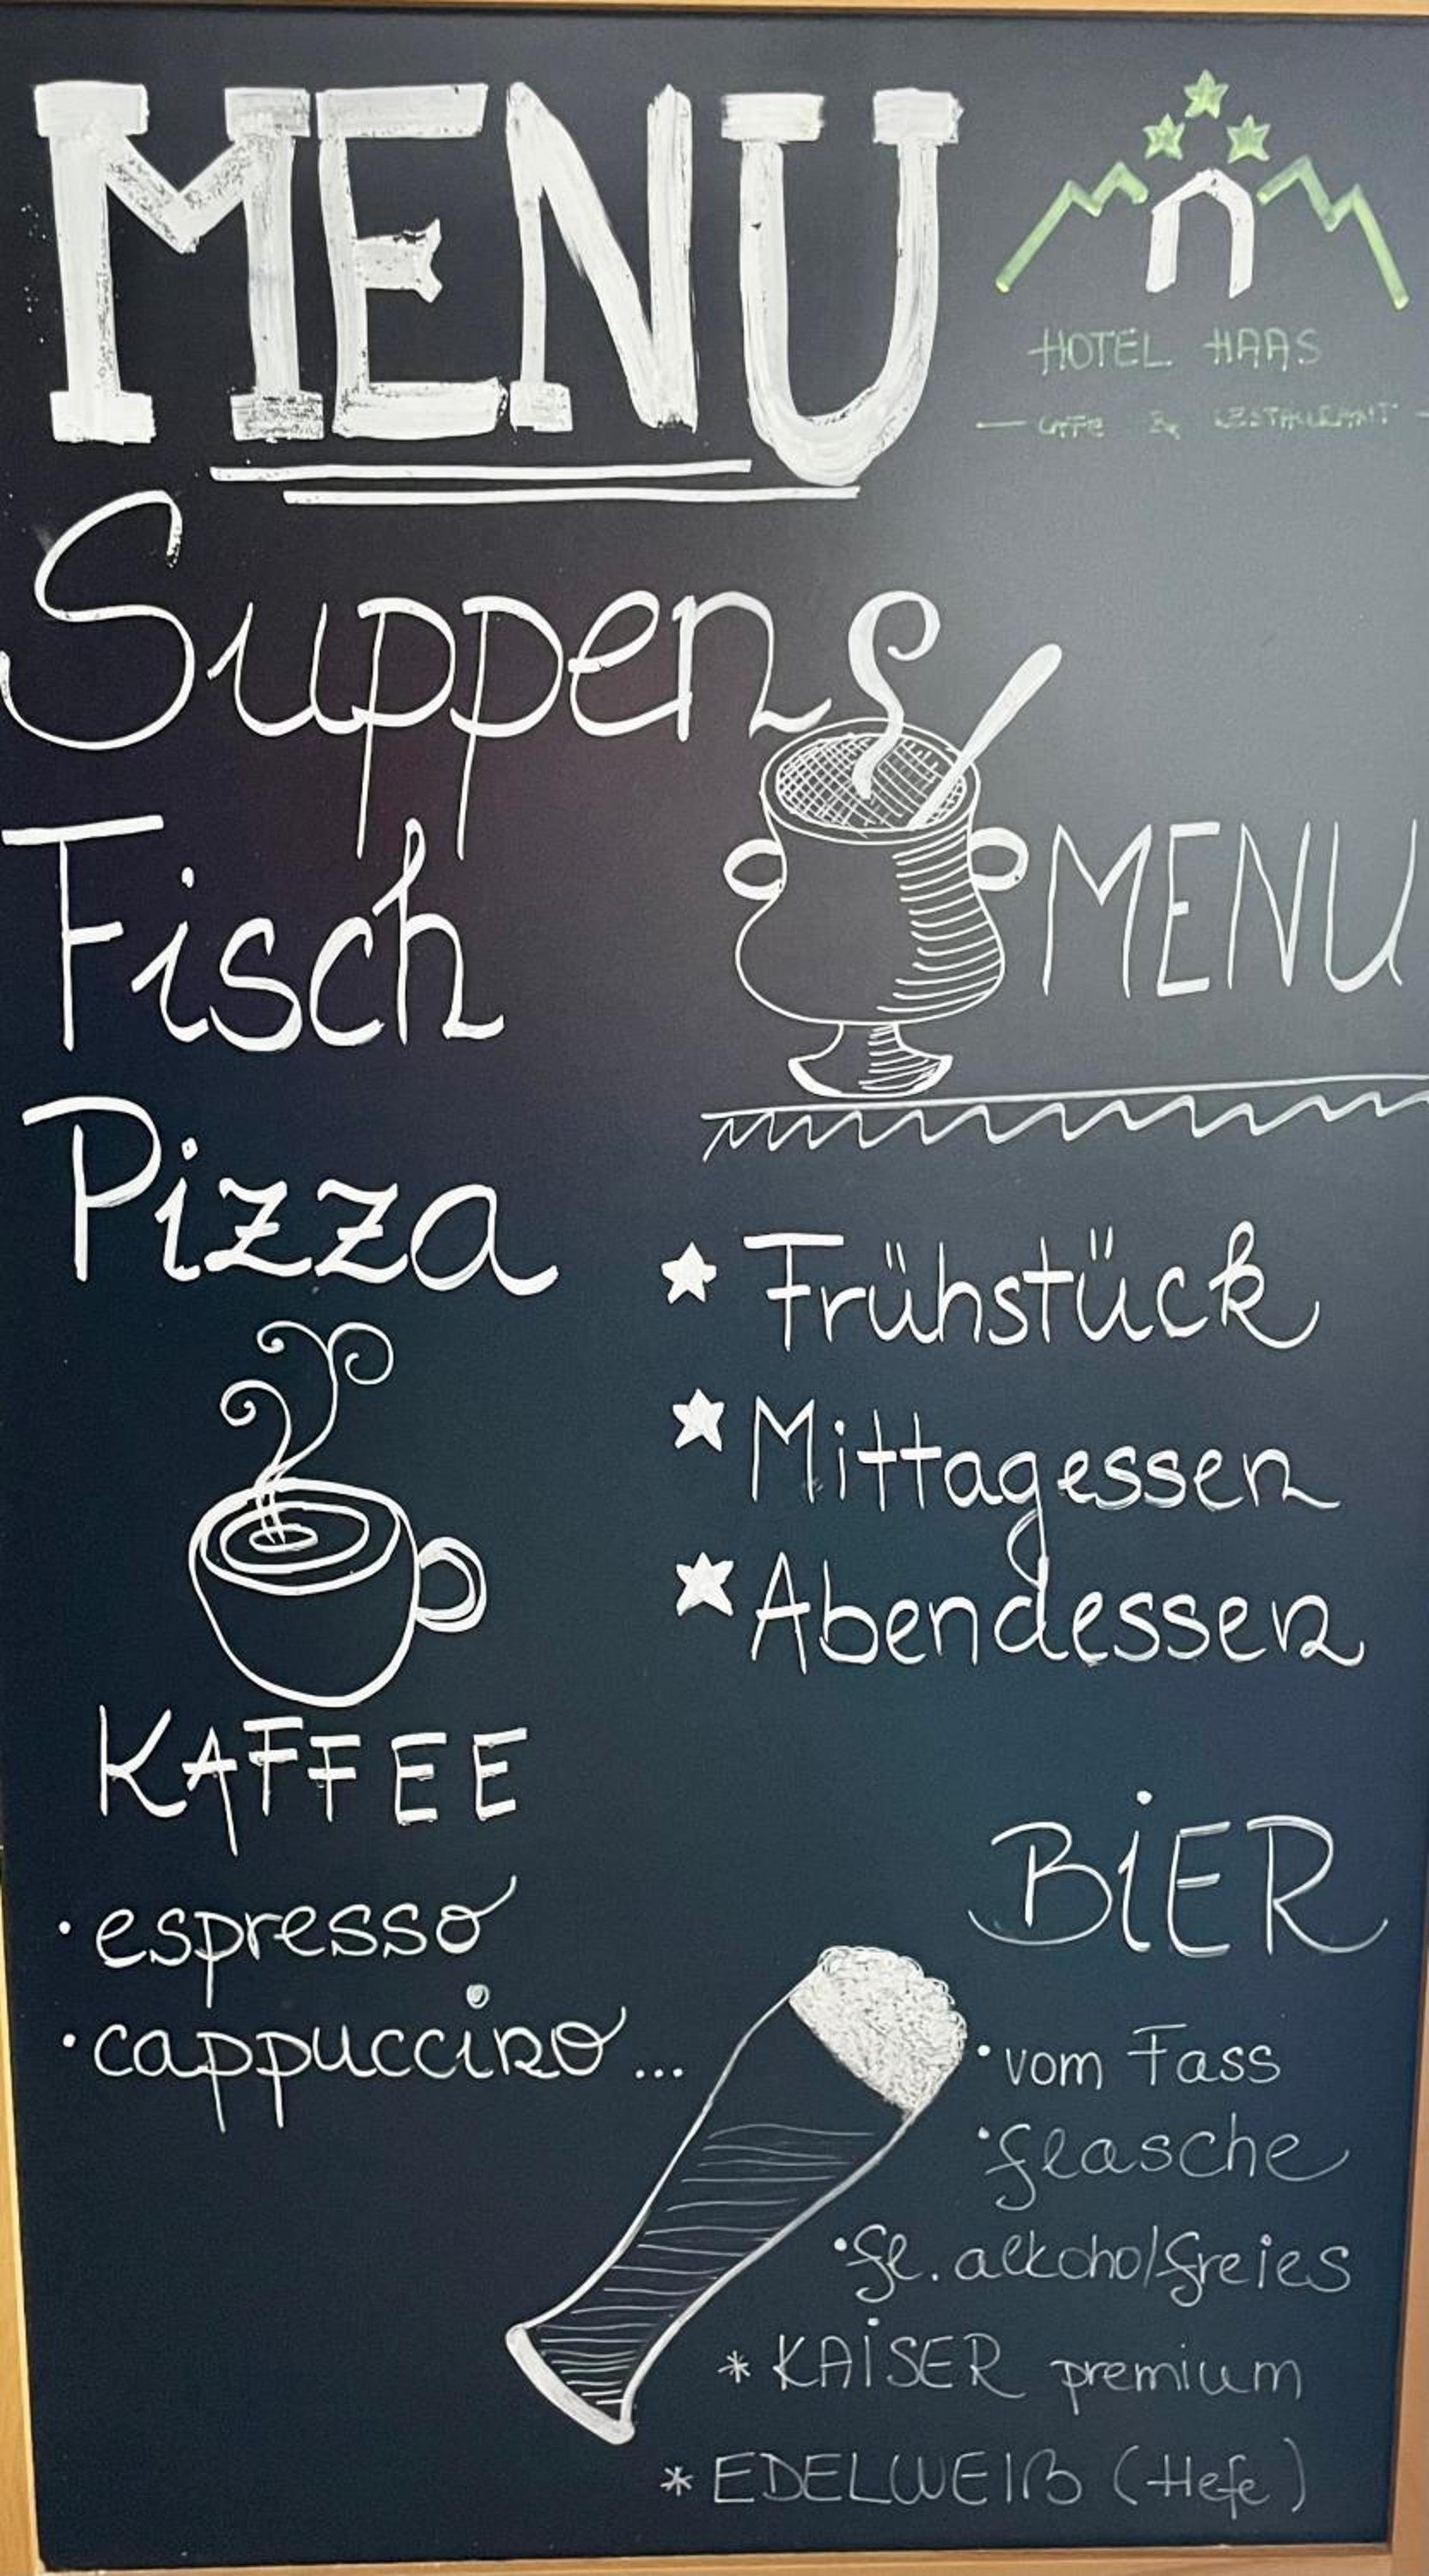 MENU
HOTEL HAAS
CAFE & RESTAURANT
Suppen
Fisch
MENU
Pizza
Frühstück
Mittagessen
Abendessen
KAFFEE
· espresso
· cappuccino...
BIER
· vom Fass
· flasche
· fl. alkoholfreies
* KAISER premium
* EDELWEIß (Hefe)